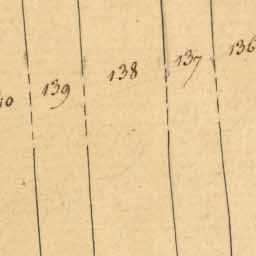 139 138 137 136